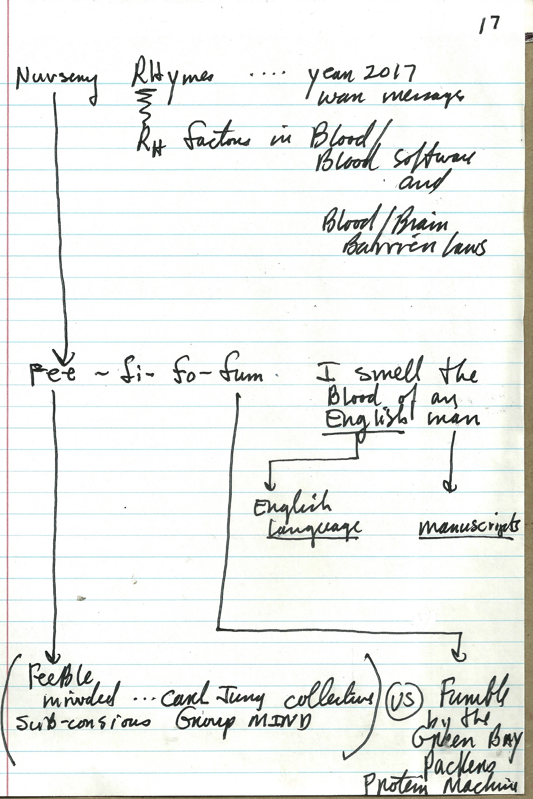 17
Nursery RHymes .... year 2017
war messages
RH factors in Blood/
Blood software
and
Blood/Brain
Barrier laws
Fee - fi - fo - fum. I smell the
Blood of an
English man
English
Language
manuscripts
Feeble
minded ... Carl Jung collective
sub-consious Group MIND
VS
Fumble
by the
Green Bay
Packers
Protein Machine